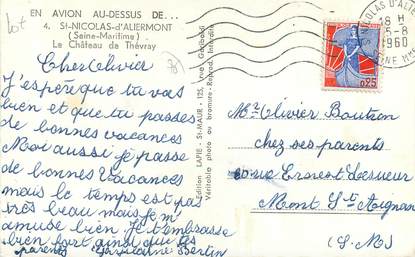 EN AVION AU-DESSUS DE...
4. St-NICOLAS-d'ALIERMONT
(Seine-Maritime)
Le Château de Thévray
lot
Cher Olivier
J'espère que tu vas
bien et que tu passes
de bonnes vacances
Moi aussi je passe
de bonnes vacances
mais le temps est pas
très beau mais je m'
amuse bien Je t'embrasse
bien fort ainsi que tes
parents Bertin
Edition LAPIE - St-MAUR - 125, rue Garibaldi
Véritable photo au bromure - Reprod. interdite
St NICOLAS D'ALIE
18 H
5-8
1960
0,25
Mr Olivier Boutron
chez ses parents
rue Ernest Lesueur
Mont St Aignan
(S.M)